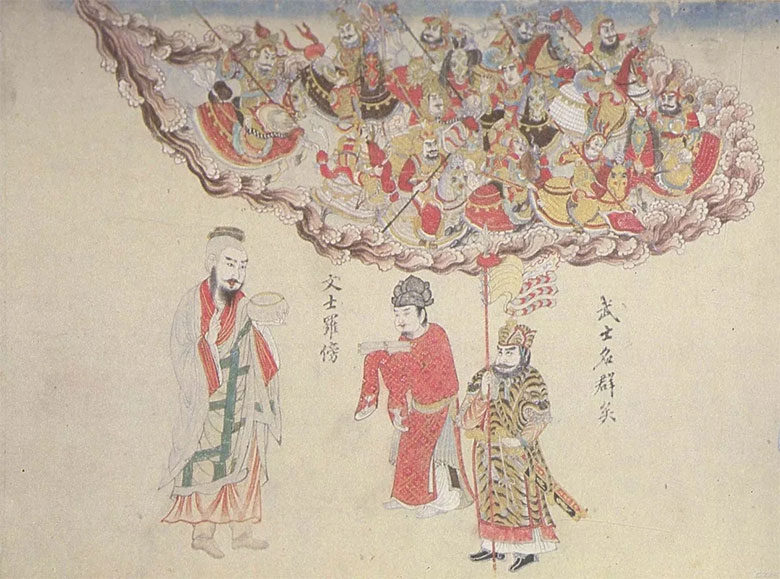 武士名群矣
文士羅傍